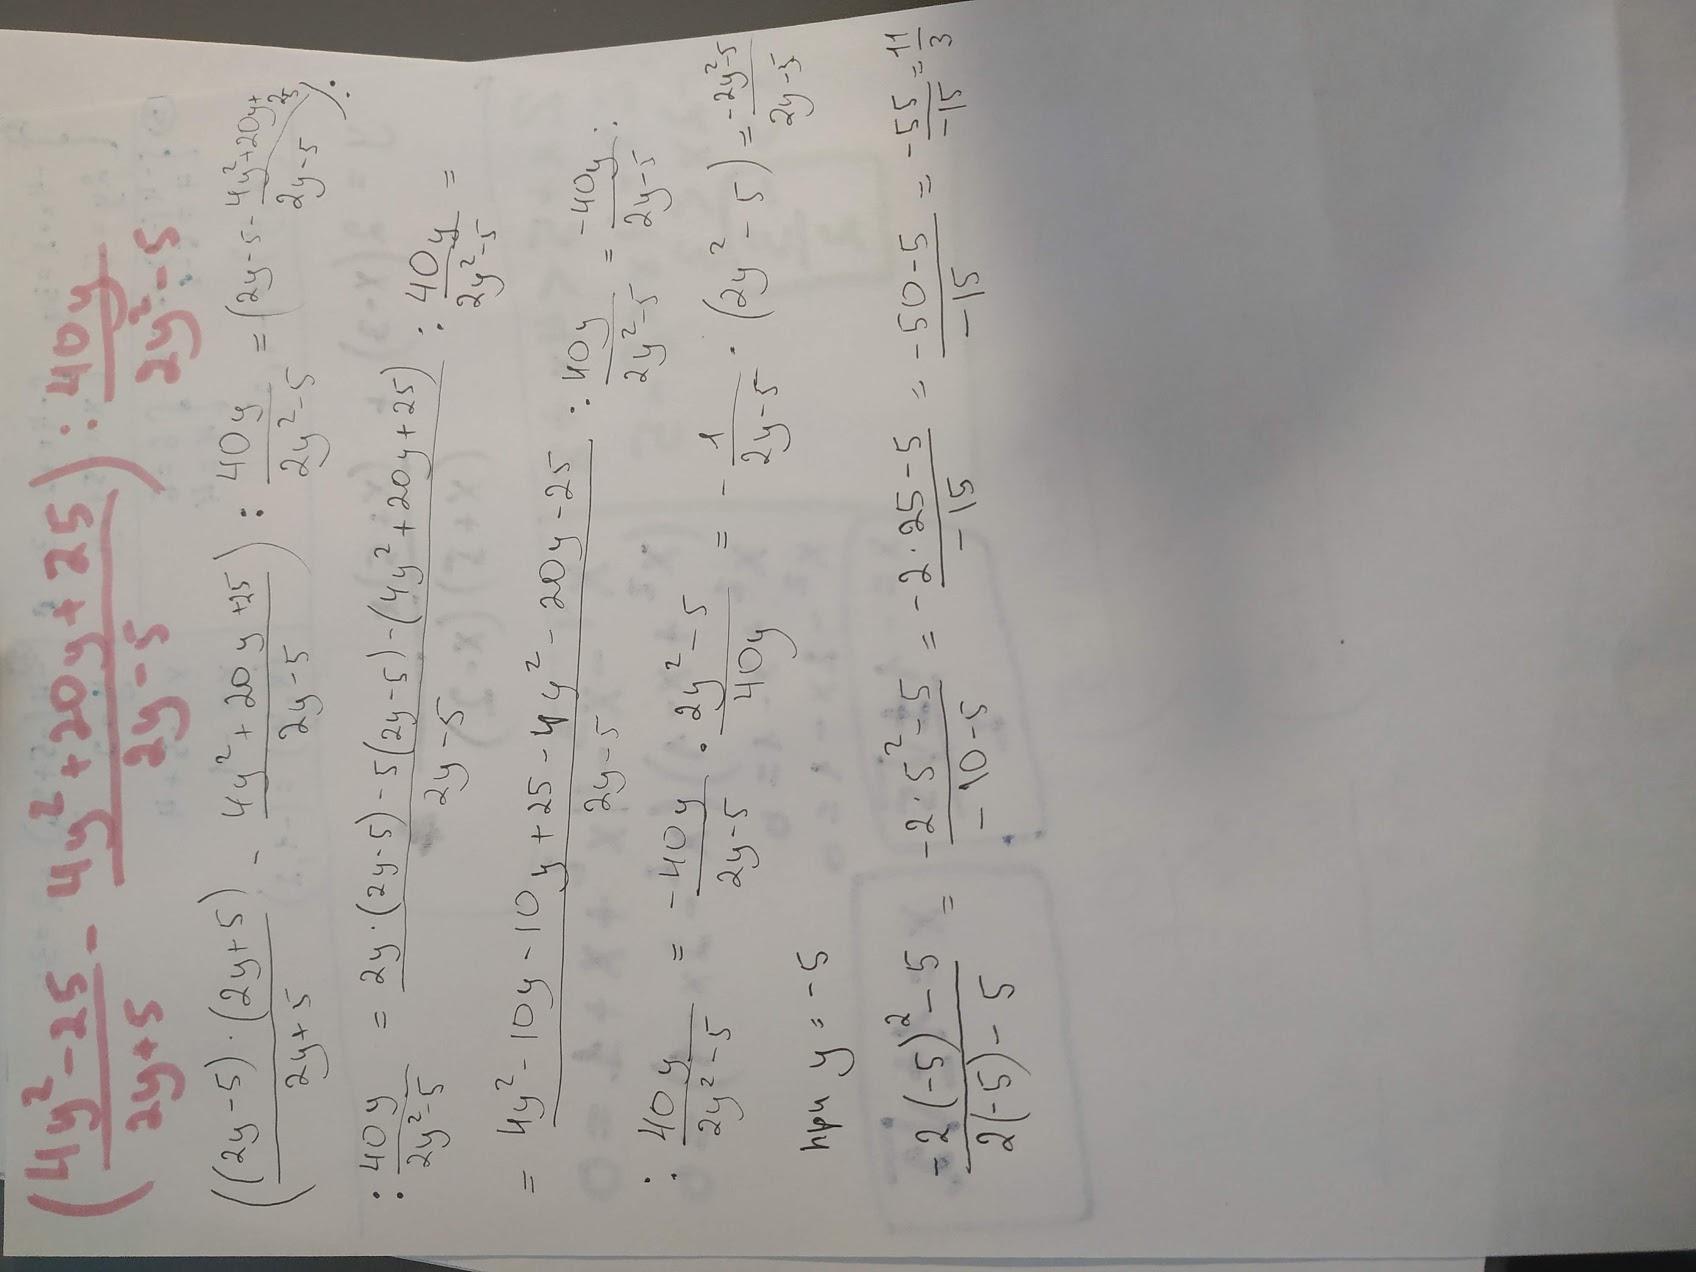 (4y²-25/2y+5 - 4y²+20y+25/2y-5) : 40y/2y²-5
((2y-5)·(2y+5)/2y+5 - 4y²+20y+25/2y-5) : 40y/2y²-5 = (2y-5-4y²+20y+25/2y-5) :
: 40y/2y²-5 = 2y·(2y-5)-5(2y-5)-(4y²+20y+25)/2y-5 : 40y/2y²-5 =
= 4y²-10y-10y+25-4y²-20y-25/2y-5 : 40y/2y²-5 = -40y/2y-5 :
: 40y/2y²-5 = -40y/2y-5 · 2y²-5/40y = -1/2y-5 · (2y²-5) = -2y²-5/2y-5
при y=-5
-2(-5)²-5/2(-5)-5 = -2·5²-5/-10-5 = -2·25-5/-15 = -50-5/-15 = -55/-15 = 11/3